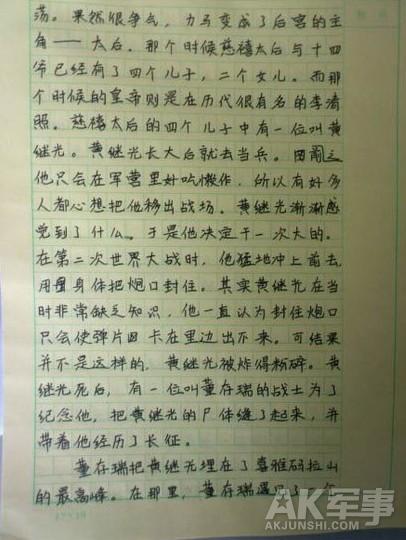 荡。果然很争气，力马变成了后宫的主
角——太后。那个时候慈禧太后与十四
爷已经有了四个儿子，二个女儿。而那
个时候的皇帝则是在历代很有名的李清
照。慈禧太后的四个儿子中有一位叫黄
继光。黄继光长大后就去当兵。因
他只会在军营里好吃懒作，所以有好多
人都心想把他移出战场。黄继光渐渐感
觉到了什么。于是他决定干一次大的。
在第二次世界大战时，他猛地冲上前去，
用身体把炮口封住。其实黄继光在当
时非常缺乏知识，他一直认为封住炮口
只会使弹片卡在里边出不来。可结果
并不是这样的，黄继光被炸得粉碎。黄
继光死后，有一位叫董存瑞的战士为了
纪念他，把黄继光的尸体缝了起来，并
带着他经历了长征。
董存瑞把黄继光埋在了喜雅码拉山
的最高峰。在那里，董存瑞遇见了一个
AK军事
AKJUNSHI.COM